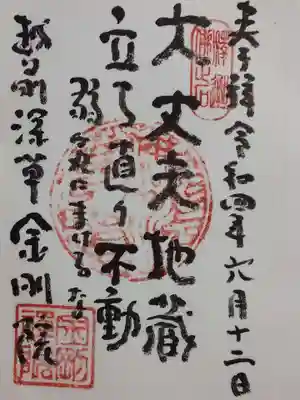 奉拝 令和四年六月十二日
大丈夫地蔵
立ち直り不動
まけるな
越前深草金剛院